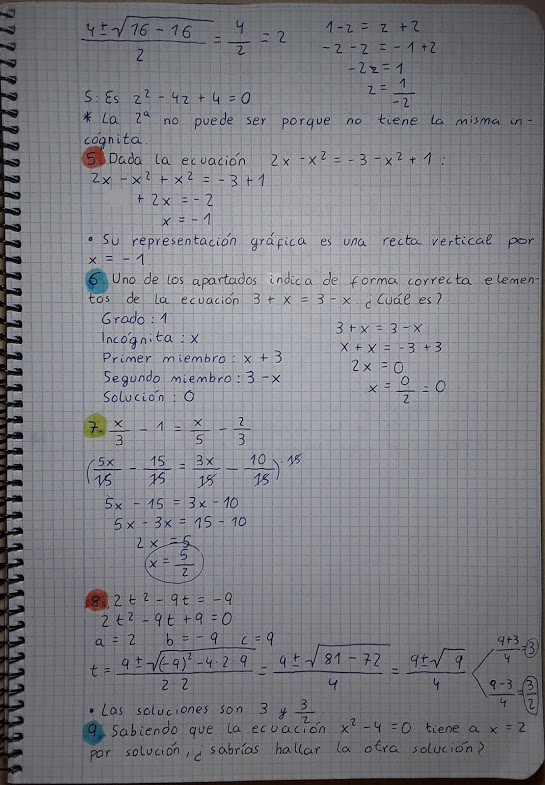 4±√16-16 / 2 = 4/2 = 2
1-z = z + 2
-z - z = -1 + 2
-2z = 1
z = 1/-2
S: Es z² - 4z + 4 = 0
* La 2ª no puede ser porque no tiene la misma in-
cógnita.
5. Dada la ecuación 2x - x² = -3 - x² + 1 :
2x - x² + x² = -3 + 1
+ 2x = -2
x = -1
• Su representación gráfica es una recta vertical por
x = -1.
6. Uno de los apartados indica de forma correcta elemen-
tos de la ecuación 3 + x = 3 - x. ¿Cuál es?
Grado: 1
Incógnita: x
Primer miembro: x + 3
Segundo miembro: 3 - x
Solución: 0
3 + x = 3 - x
x + x = -3 + 3
2x = 0
x = 0/2 = 0
7. x/3 - 1 = x/5 - 2/3
(5x/15 - 15/15 = 3x/15 - 10/15)·15
5x - 15 = 3x - 10
5x - 3x = 15 - 10
2x = 5
x = 5/2
8. 2t² - 9t = -9
2t² - 9t + 9 = 0
a = 2 b = -9 c = 9
t = 9±√(-9)²-4·2·9 / 2·2 = 9±√81-72 / 4 = 9±√9 / 4
9+3/4 = 3
9-3/4 = 3/2
• Las soluciones son 3 y 3/2.
9. Sabiendo que la ecuación x² - 4 = 0 tiene a x = 2
por solución, ¿sabrías hallar la otra solución?